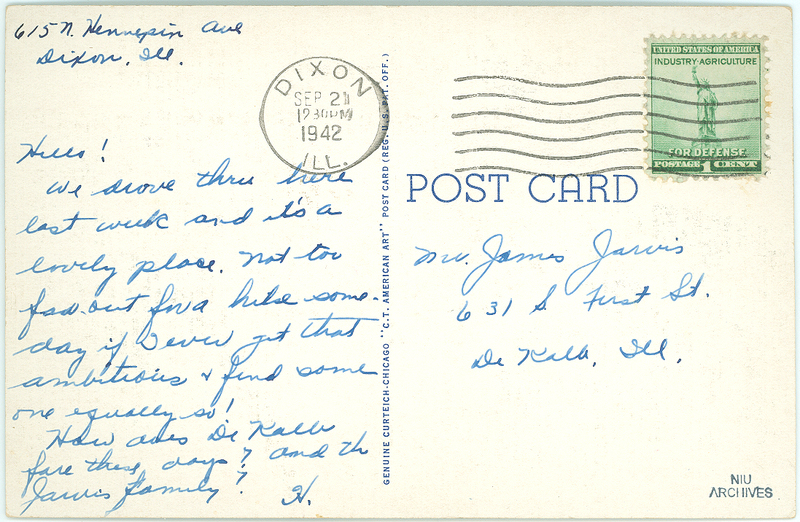 615 N. Hennepin Ave
Dixon, Ill.
DIXON
SEP 21
1230PM
1942
ILL.
Hello!
We drove thru here
last week and it's a
lovely place. Not too
far out for a hike some-
day if I ever get that
ambitious & find some
one equally so!
How does De Kalb
fare these days? And th
Jarvis family?
H.
GENUINE CURTEICH-CHICAGO "C.T. AMERICAN ART" POST CARD (REG. U. S. PAT. OFF.)
UNITED STATES OF AMERICA
INDUSTRY·AGRICULTURE
FOR DEFENSE
POSTAGE 1 CENTS
POST CARD
Mr. James Jarvis
631 S. First St.
De Kalb, Ill.
NIU
ARCHIVES